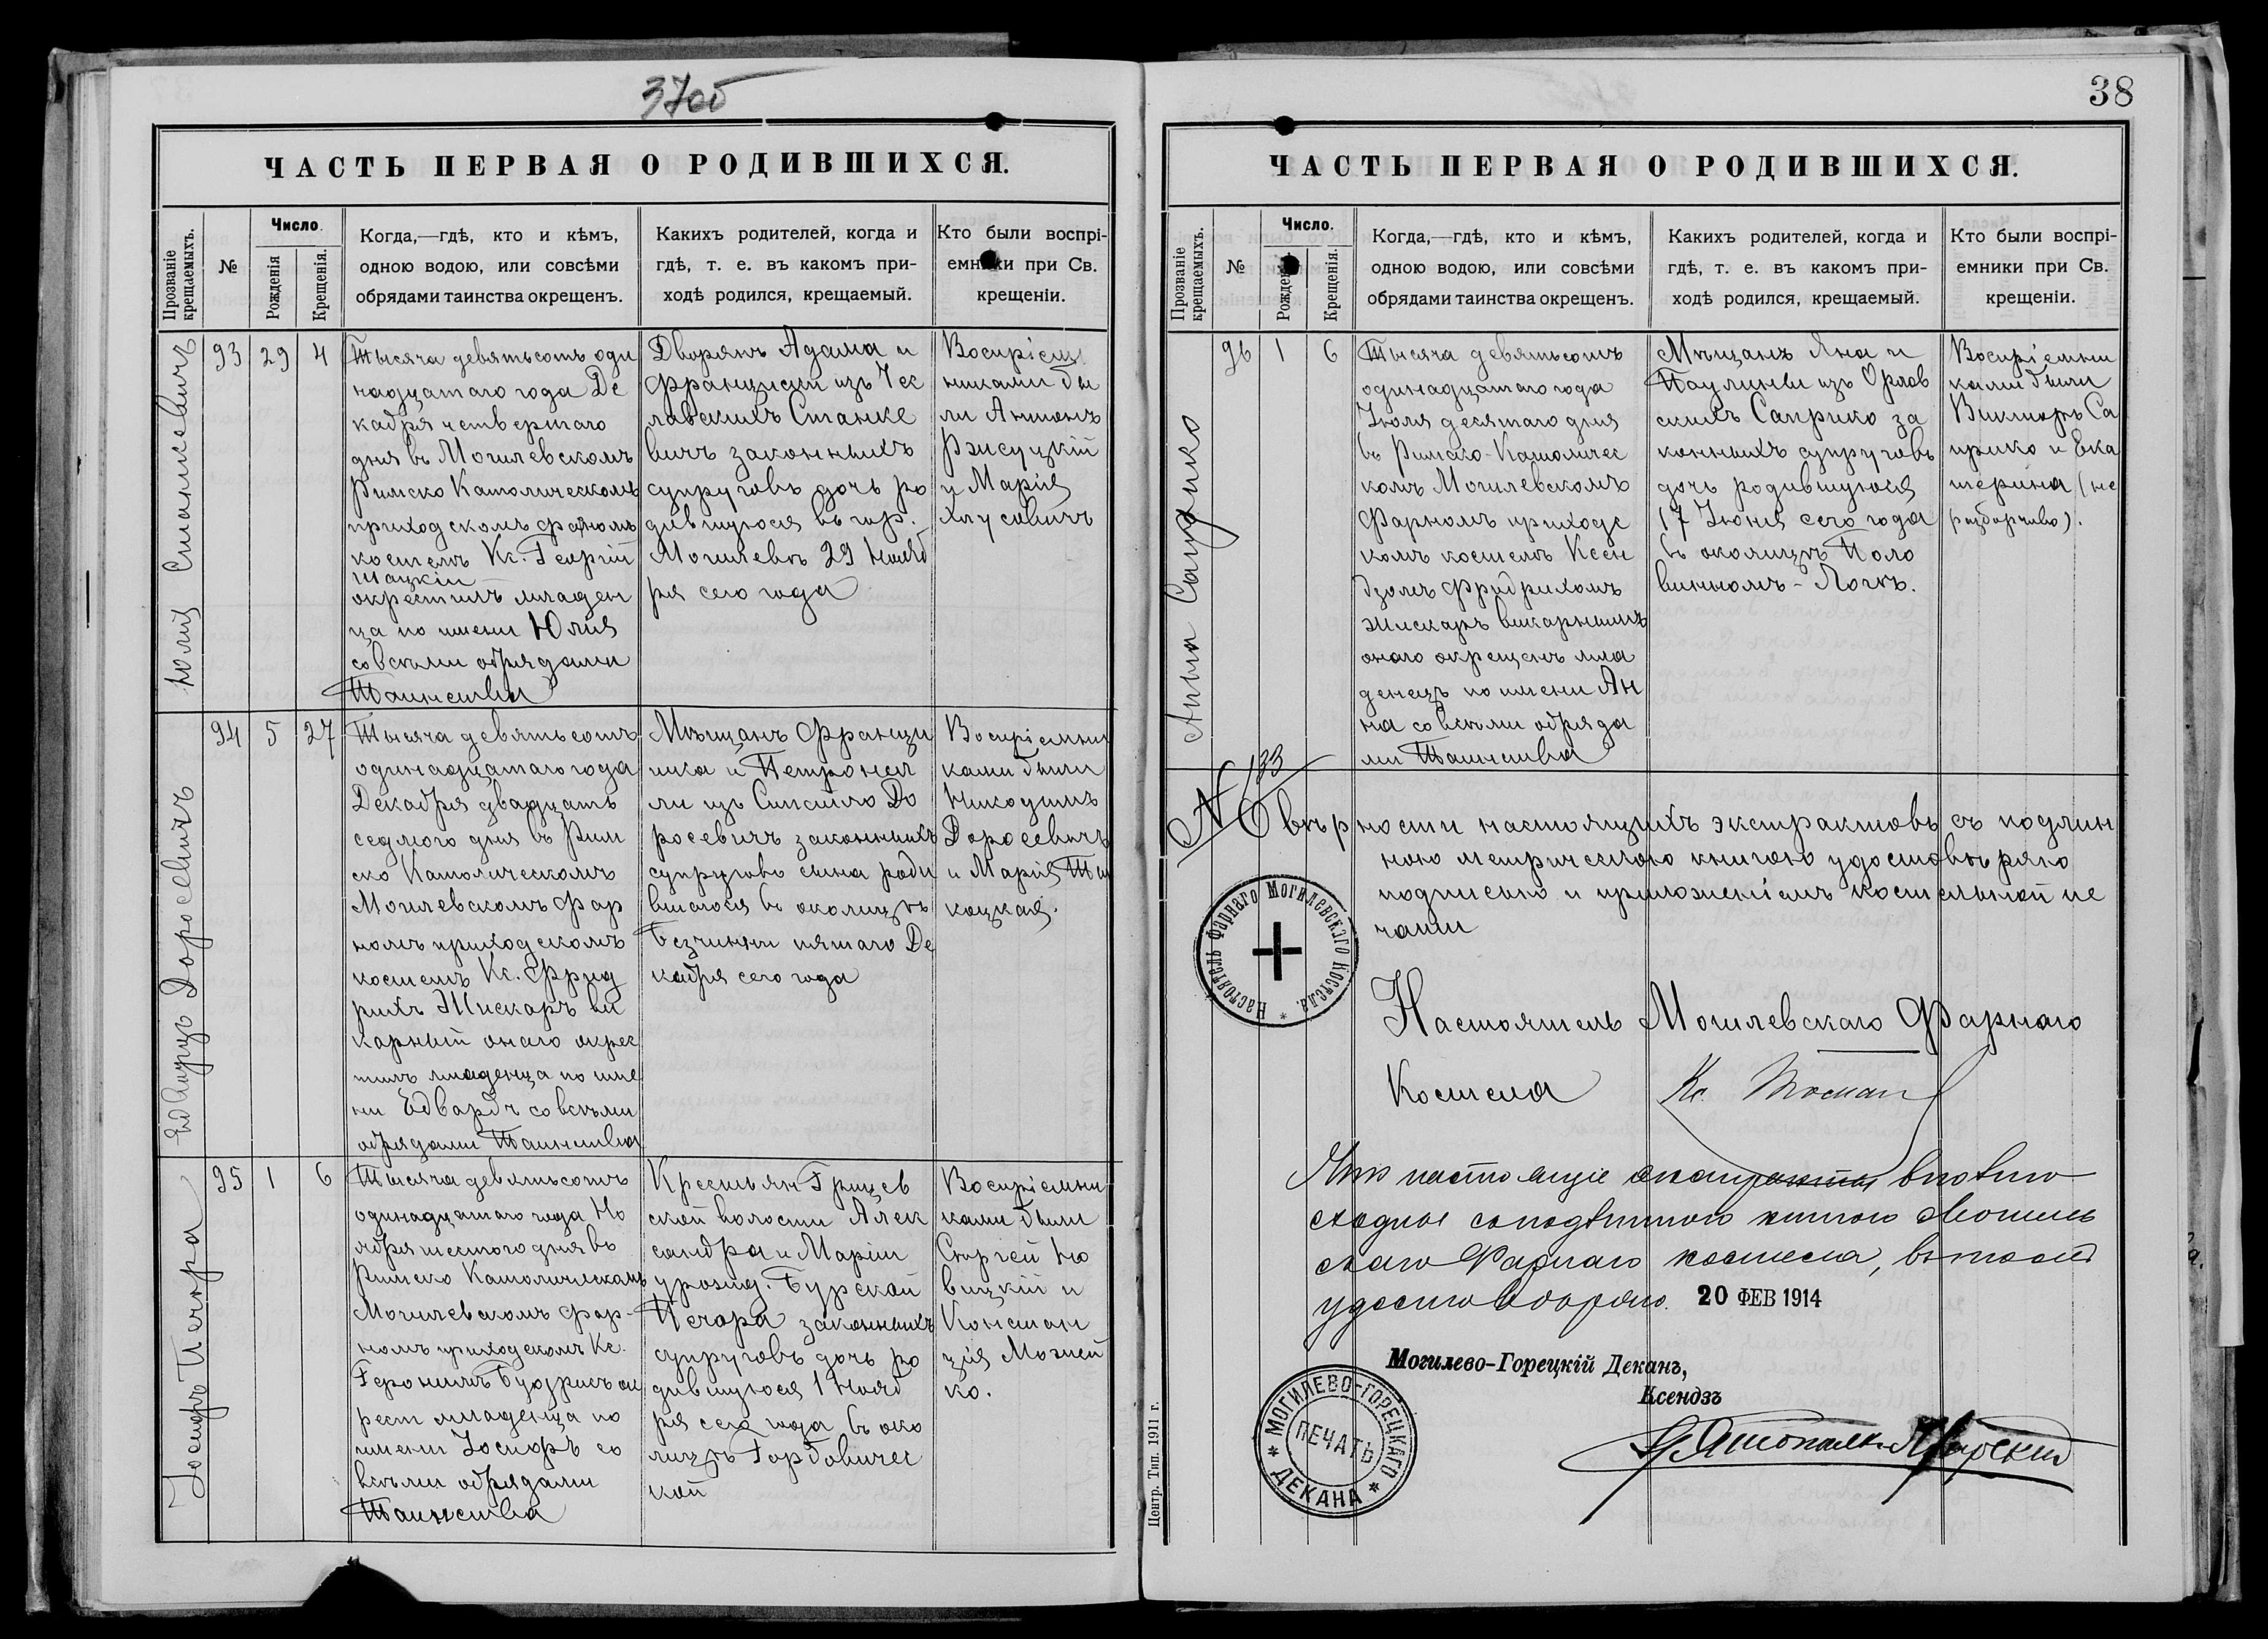 37об
ЧАСТЬ ПЕРВАЯ О РОДИВШИХСЯ.
Прозваніе крещаемыхъ.
№
Число.
Рожденія
Крещенія.
Когда,—гдѣ, кто и кѣмъ,
одною водою, или совсѣми
обрядами таинства окрещенъ.
Какихъ родителей, когда и
гдѣ, т. е. въ какомъ при-
ходѣ родился, крещаемый.
Кто были воспрі-
емники при Св.
крещеніи.
Юлія Станкевичъ
93
29
4
Тысяча девятьсотъ оди
надцатаго года Де
кабря четвертаго
дня въ Могилевскомъ
Римско Католическомъ
приходскомъ фарномъ
костелѣ Кс. Георгій
Шацкій
окрестилъ младен
ца по имени Юлія
со всѣми обрядами
Таинства
Дворянъ Адама и
Францишки изъ Чес
лавскихъ Станке
вичъ законныхъ
супруговъ дочь ро
дившуюся въ гор.
Могилевѣ 29 Нояб
ря сего года
Воспріем
никами бы
ли Антонъ
Рэисуцкій
и Марія
Хлусовичъ
Эдвардъ Доросевичъ
94
5
27
Тысяча девятьсотъ
одинадцатаго года
Декабря двадцать
седмого дня въ Рим
ско Католическомъ
Могилевскомъ Фар
номъ приходскомъ
костелѣ Кс. Фрид
рихъ Жискаръ ви
карный онаго окрес
тилъ младенца по име
ни Едвардъ со всѣми
обрядами Таинства
Мѣщанъ Франци
шка и Петронел
ли изъ Сипайло До
росевичъ законныхъ
супруговъ сына роди
вшагося въ околицѣ
Безчинни пятаго Де
кабря сего года
Воспріемни
ками были
Никодимъ
Доросевичъ
и Марія Ти
коцкая.
Іосифъ Печора
95
1
6
Тысяча девятьсотъ
одинадцатаго года Но
ября шестого дня въ
Римско Католическомъ
Могилевскомъ фар-
номъ приходскомъ Кс.
Геронимъ Будрисъ ок
рест младенца по
имени Іосифъ со
всѣми обрядами
Таинства
Крестьян Грицев
ской волости Алек
сандра и Маріи
урожд. Бурской
Печора законныхъ
супруговъ дочь ро
дившуюся 1 Нояб
ря сего года въ око
лицѣ Горбовичес
кой
Воспріемни
ками были
Сергей Но
вицкій и
Констан
ція Можей
ко.
38
ЧАСТЬ ПЕРВАЯ О РОДИВШИХСЯ.
Прозваніе крещаемыхъ.
№
Число.
Рожденія
Крещенія.
Когда,—гдѣ, кто и кѣмъ,
одною водою, или совсѣми
обрядами таинства окрещенъ.
Какихъ родителей, когда и
гдѣ, т. е. въ какомъ при-
ходѣ родился, крещаемый.
Кто были воспрі-
емники при Св.
крещеніи.
Анна
96
1
6
Тысяча девятьсотъ
одинадцатаго года
Іюля десятаго дня
въ Римско-Католичес
комъ Могилевскомъ
Фарномъ приходс
комъ костелѣ Ксен
дзомъ Фридрихомъ
Жискаръ викарнымъ
онаго окрещенъ мла
денецъ по имени Ан
на со всѣми обряда
ми Таинства
Мѣщанъ Яна и
Паулины изъ Орлов
скихъ Саприко за
конныхъ супруговъ
дочь родившуюся
17 Іюня сего года
въ околицѣ Поло
винномъ-Логѣ.
Воспріемни
ками были
Викторъ Са
прико и Ека
терина (не
разборчиво).
№ 133
О вѣрности настоящихъ экстрактовъ съ подлин
ною метрическою книгою удостовѣряю
подписью и приложеніемъ костельной пе
чати
Настоятель Фарнаго Могилевскаго Костела.
Настоятель Могилевскаго Фарнаго
Костела Кс.
Что настоящіе экстракты вполнѣ
сходны съ подлинною книгою Могилев
скаго Фарнаго костела, въ томъ
удостовѣряю. 20 ФЕВ 1914
Могилево-Горецкій Деканъ,
Ксендзъ
МОГИЛЕВО-ГОРЕЦКАГО ДЕКАНА
ПЕЧАТЬ
Центр. Тип. 1911 г.